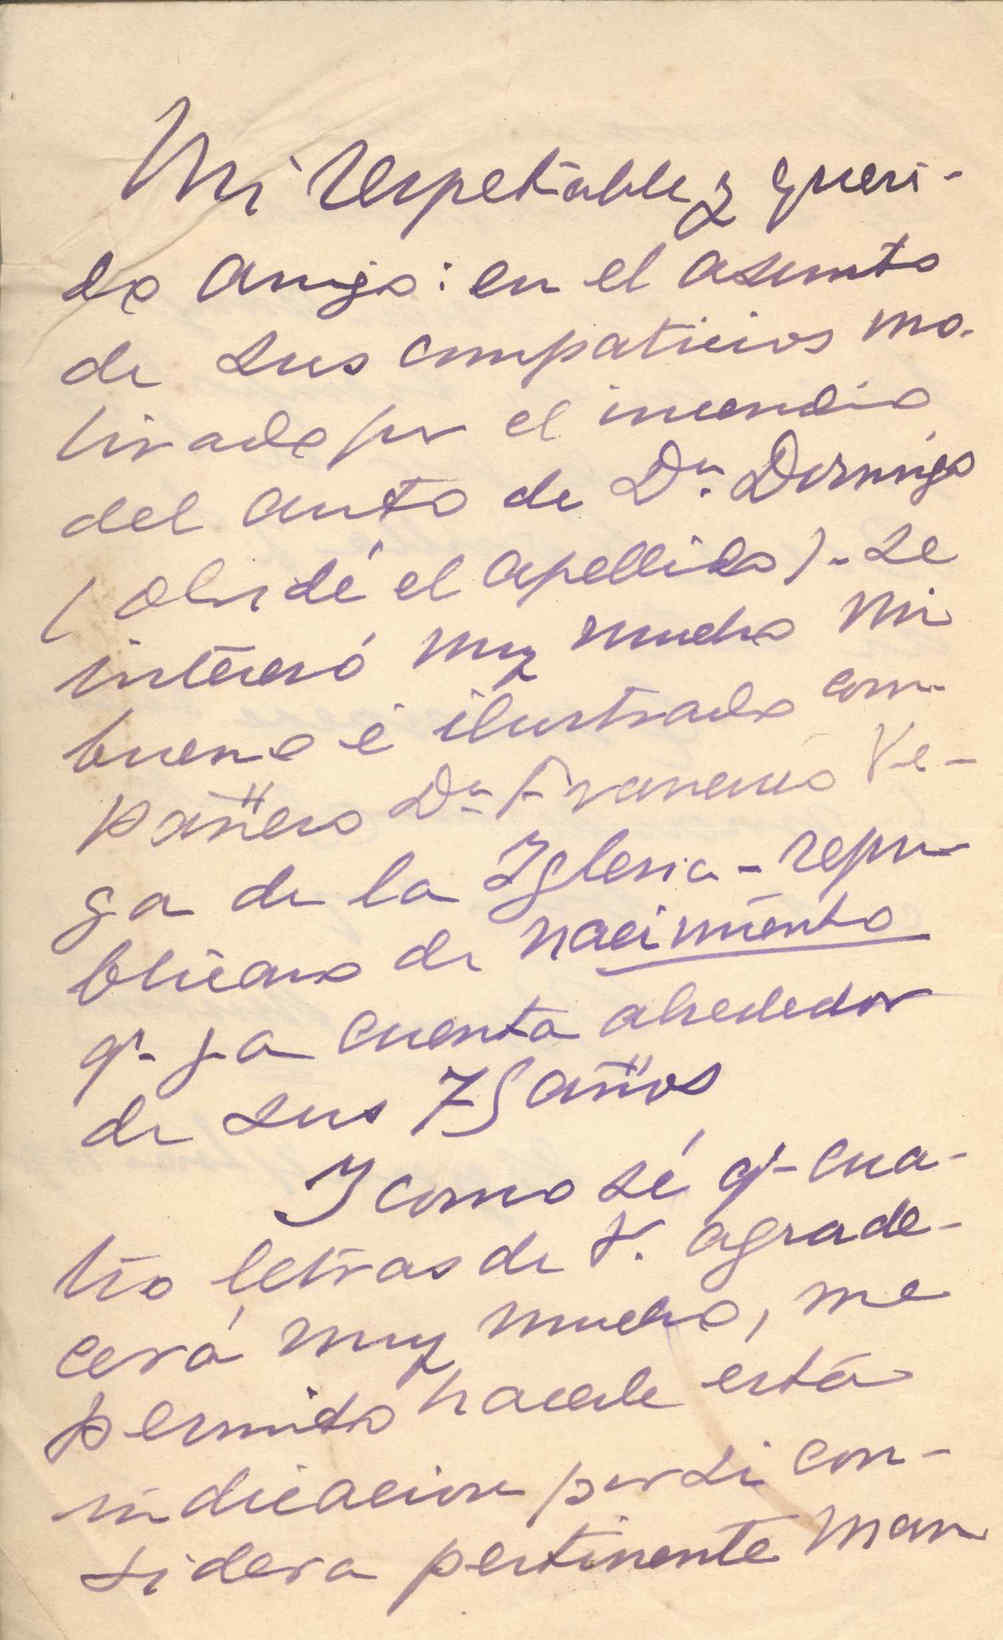 Mi respetable y queri-
do amigo: en el asunto
de sus compatricios mo-
tivado por el incendio
del auto de Dn. Domingo
(olvidé el apellido). se
interesó muy mucho mi
bueno é ilustrado com-
pañero Dn Francisco Ve-
ga de la Iglesia - repu-
blicano de nacimiento
q.- ya cuenta alrededor
de sus 75 años
Y como sé q.- cua-
tro letras de V. agrade-
cerá muy mucho, me
permito hacerle esta
indicacion por si con-
sidera pertinente man